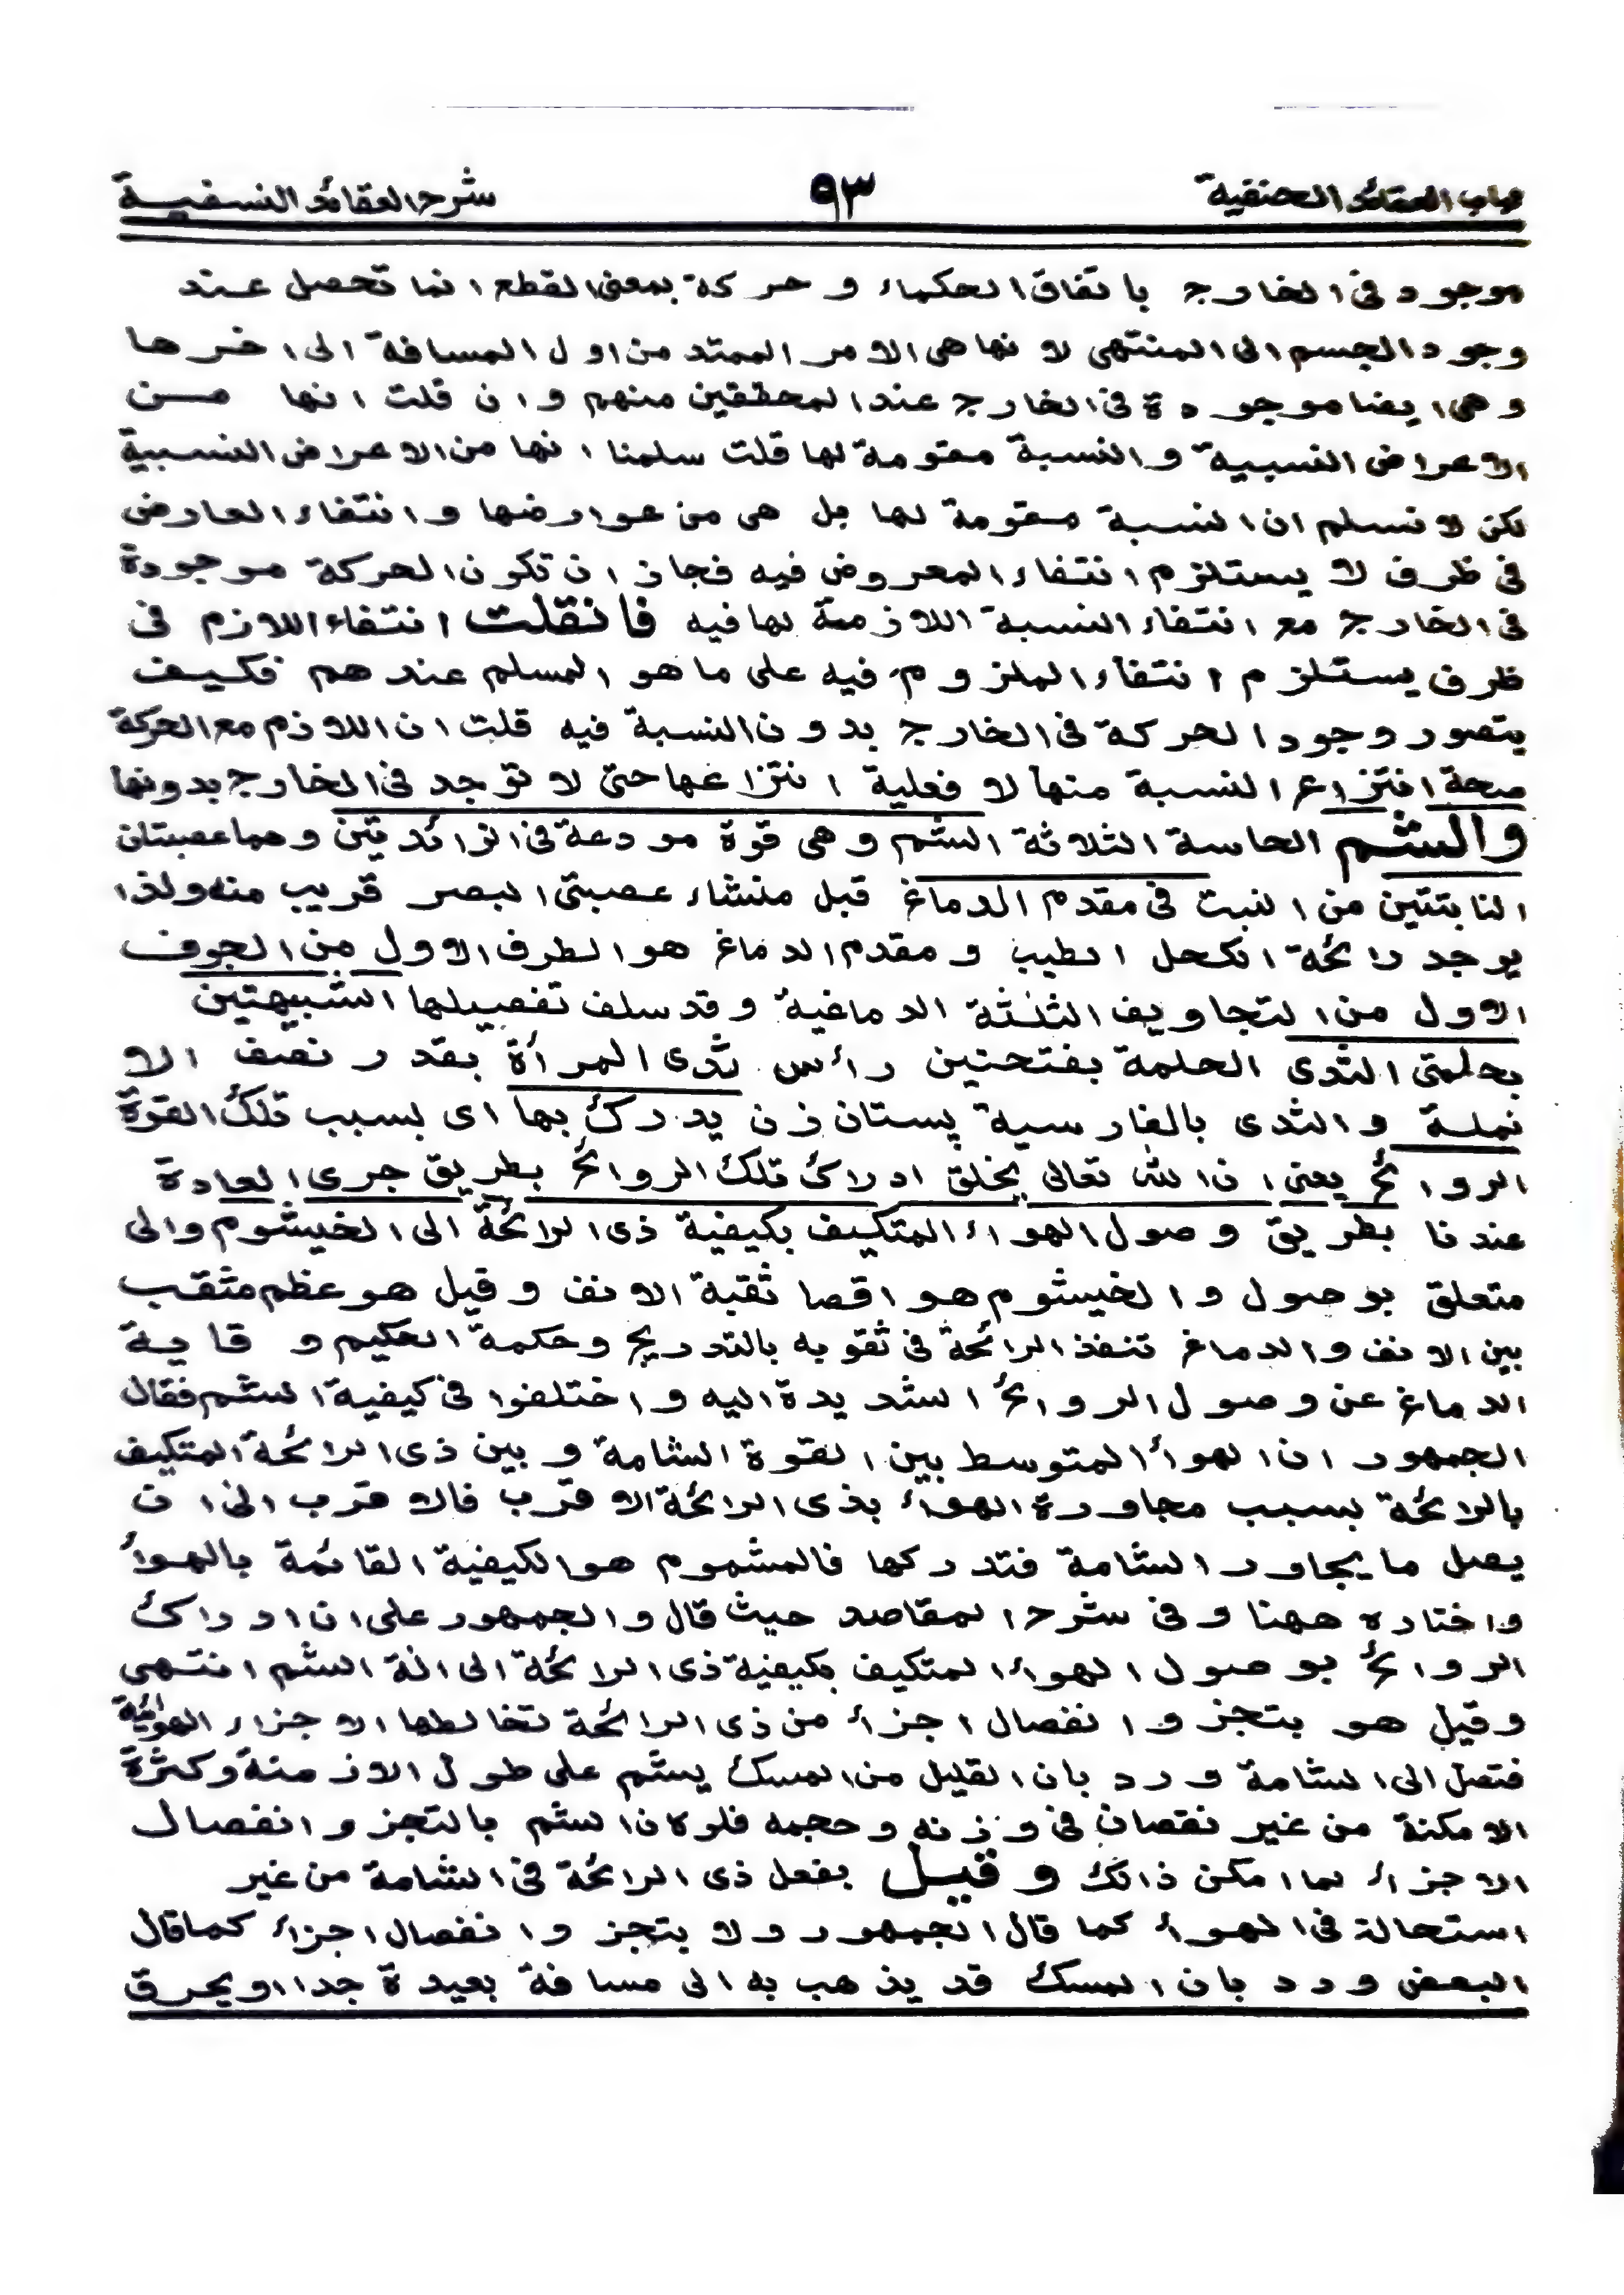 العقائد الحنفية ٩٣ شرح العقائد النسفية
موجود فى الخارج باتفاق الحكماء و حركة بمعنى القطع انما تحصل عند
وجود الجسم الى المنتهى لانها هى الامر الممتد من اول المسافة الى اخرها
وهى ايضا موجودة فى الخارج عند المحققين منهم وان قلت انها من
الاعراض النسبية والنسبة مقومة لها قلت سلمنا انها من الاعراض النسبية
لكن لا نسلم ان النسبة مقومة لها بل هى من عوارضها وانتفاء العارض
فى ظرف لا يستلزم انتفاء المعروض فيه فجاز ان تكون الحركة موجودة
فى الخارج مع انتفاء النسبة اللازمة لها فيه فانقلت انتفاء اللازم فى
ظرف يستلزم انتفاء الملزوم فيه على ما هو المسلم عندهم فكيف
يتصور وجود الحركة فى الخارج بدون النسبة فيه قلت ان اللازم مع الحركة
صحة انتزاع النسبة منها لا فعلية انتزاعها حتى لا توجد فى الخارج بدونها
والشم الحاسة الثلاثة الشم وهى قوة مودعة فى الزائدتين وهما عصبتان
النابتتين من النبت فى مقدم الدماغ قبل منشاء عصبتى البصر قريب منه ولذا
يوجد رائحة الكحل الطيب و مقدم الدماغ هو الطرف الاول من الجوف
الاول من التجاويف الثلثة الدماغية وقد سلف تفصيلها الشبيهتين
بحلمتى الثدى الحلمة بفتحنين رأس ثدى المرأة بقدر نصف الا
نملة والثدى بالفارسية پستان زن يدرك بها اى بسبب تلك القوة
الروائح يعنى ان الله تعالى يخلق ادراك تلك الروائح بطريق جرى العادة
عندنا بطريق وصول الهواء المتكيف بكيفية ذى الرائحة الى الخيشوم والى
متعلق بوصول والخيشوم هو اقصا ثقبة الانف وقيل هو عظم مثقب
بين الانف والدماغ تنفذ الرائحة فى ثقوبه بالتدريج وحكمة الحكيم وقاية
الدماغ عن وصول الروائح الشديدة اليه واختلفوا فى كيفية الشم فقال
الجمهور ان الهوأ المتوسط بين القوة الشامة وبين ذى الرائحة المتكيف
بالرائحة بسبب مجاورة الهوأ بذى الرائحة الاقرب فالاقرب الى ان
يصل ما يجاور الشامة فتدركها فالمشموم هو الكيفية القائمة بالهوأ
واختاره ههنا وفى شرح المقاصد حيث قال والجمهور على ان ادراك
الروائح بوصول الهواء المتكيف بكيفية ذى الرائحة الى الة الشم انتهى
وقيل هو بتجز وانفصال اجزأ من ذى الرائحة تخالطها الاجزاء الهوائية
فتصل الى الشامة ورد بان القليل من المسك يشم على طول الازمنة وكثرة
الامكنة من غير نقصان فى وزنه وحجمه فلو كان الشم بالتجز وانفصال
الاجزأ لما امكن ذالك وقيل بفعل ذى الرائحة فى الشامة من غير
استحالة فى الهوأ كما قال الجمهور ولا بتجز وانفصال اجزأ كما قال
البعض ورد بان المسك قد يذهب به الى مسافة بعيدة جدا او يحرق